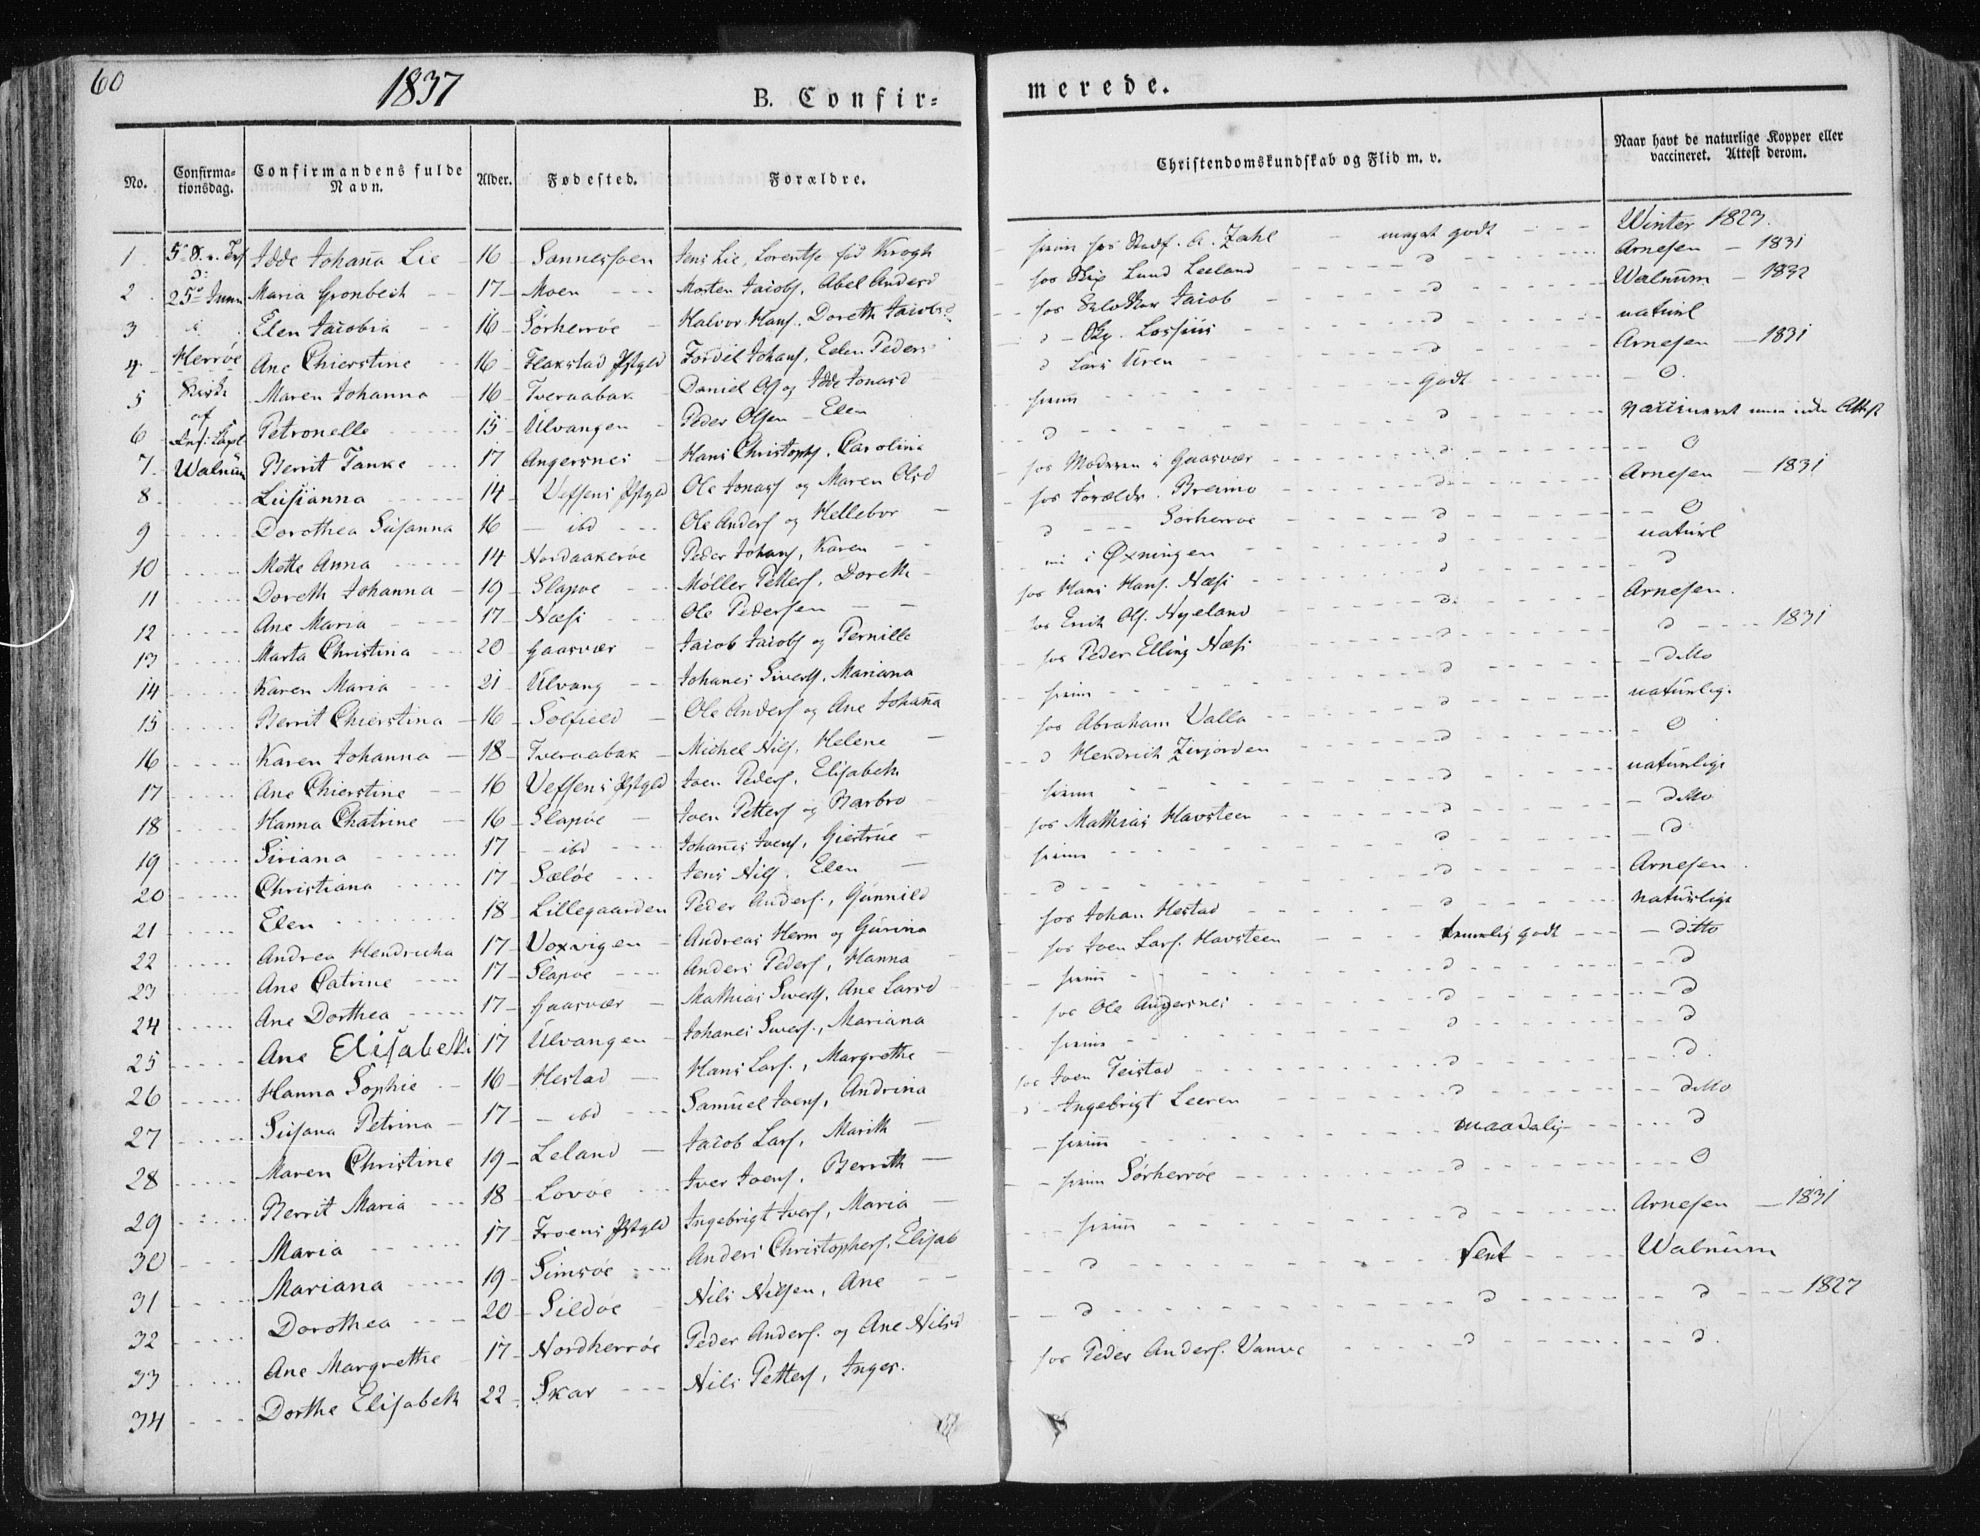 60
1837
B. Confir=
merede.
No.
Confirma-
tionsdag.
Confirmandens fulde
Navn.
Alder.
Fødested.
Forældre.
Christendomskundskab og Flid m. v.
Naar havt de naturlige Kopper eller
vaccineret. Attest derom.
1 5 S. Idde Johanna Lie 16 Sannessøen Jens Lie, Lorentse fød Krogh A. Zahl meget godt Winter 1823.
2 25 Juni Maria Grønbech 17 Moen Morten Jacobs, Abel Andersd hos Lund Leeland d Arnesen 1831
3 Elen Jacobia 16 Sørherrøe Halvor Hans. Doreth Jacobsd hos Jacob d Walnum 1832
4 Herrøe Ane Chierstine 16 Flakstad Pstgld Johans, Elen Peders d Lossius d naturl
5 Kirke Maren Johanna 16 Tveraabak Daniel Ols og Idde Jonasd d Lars Uren d Arnesen 1831
6 af Petronelle 15 Ulvangen Peder Olsen Elen hiem Godt d
7 Walnum Berrit Tanke 17 Angersnes Hans Christophs, Carolina d d vaccineret men uden Attest
8 Lusianna 14 Vefsens Pstgld Ole Jonass og Maren Olsd hos Moderen i Gaasvær d d
9 Dorothea Susanna 16 ibd Ole Anders og Hellebor hos Forældr. Breimo d Arnesen 1831
10 Mette Anna 14 Nordaakerøe Peder Johans, Karen d Sørherroe d d
11 Doreth Johanna 19 Slapøe Møller Petters, Doreth i Øxningen d naturl
12 Ane Maria 17 Næsi Ole Pedersen hos Hans Hans. Næsi d d
13 Marta Christina 20 Gaasvær Jacob Jacobs og Pernille hos Erich Ols. Nyeland d Arnesen.
14 Karen Maria 21 Ulvang Johanes Siverts, Mariana hos Peder Elling Næsi d d 1831
15 Berrit Chierstina 16 Sølfield Ole Anders og Ane Johanna hiem d ditto
16 Karen Johanna 18 Tveraabak Michel Nils, Helene hos Abraham Valla d naturlig
17 Ane Chierstine 16 Vefsens Pstgld Joen Peders, Elisabeth d Hendrich Zirjorden d d
18 Hanna Chatrine 16 Slapøe Joen Petters og Barbro hiem d naturlige
19 Siriana 17 ibd Johanes Joens, Giertrue hos Mathias Havsteen d ditto
20 Christiana 17 Sæløe Jens Nils, Elen hiem d d
21 Elen 18 Lillegaarden Peder Anders., Gunnild d d Arnesen
22 Andrea Hendricha 17 Voxvigen Andreas Herm og Gurina hos Johan Hestad d naturlige
23 Ane Catrine 17 Slapøe Anders Peders, Hanna hos Joen Lars. Havsteen temmelig godt ditto
24 Ane Dorthea 17 Gaasvær Mathias Siverts, Ane Larsd hiem d d
25 Ane Elisabeth 17 Ulvangen Johanes Siverts., Mariana hos Ole Angersnes d d
26 Hanna Sophie 16 Hestad Hans Lars., Margrethe hiem d d
27 Susana Petrina 17 ibd Samuel Joens, Andrina hos Joen Teistad d d
28 Maren Christine 19 Leland Jacob Lars, Marith d Ingebrigt Leeren d ditto
29 Berrit Maria 18 Lovøe Iver Joens, Berrith hiem maadelig d
30 Maria 17 Froens Pstgld Ingebrigt Ivers, Maria hiem Sørherrøe d d
31 Mariana 19 Simsøe Anders Christophers, Elisab hiem d Arnesen 1831
32 Dorothea 20 Sildøe Nils Nilsen, Ane d Sent Walnum
33 Ane Margrethe 17 Nordherrøe Peder Anders. og Ane Nilsd d d d 1827
34 Dorthe Elisabeth 22 Skar Nils Petters, Inger. hos Peder Anders. d d